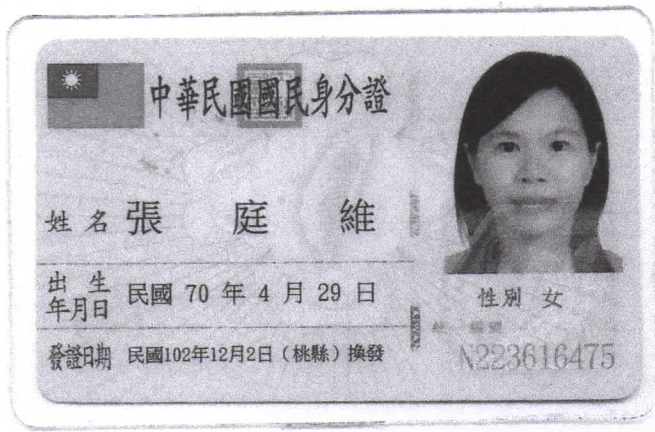 中華民國國民身分證
姓名 張庭維
出生年月日 民國 70 年 4 月 29 日
性別 女
發證日期 民國102年12月2日（桃縣）換發
N223616475